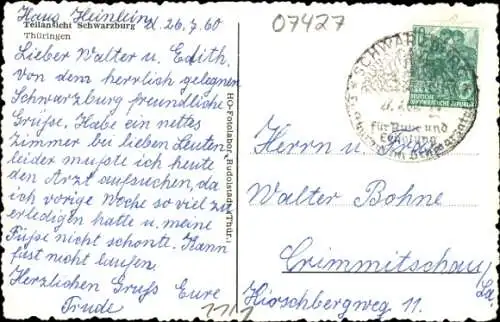 Haus Heinlein d. 26.7.60
Teilansicht Schwarzburg
Thüringen
Lieber Walter u. Edith.
Von dem herrlich gelegnen
Schwarzburg freundliche
Grüße. Habe ein nettes
Zimmer bei lieben Leuten
leider mußte ich heute
den Arzt aufsuchen, da
ich vorige Woche so viel zu
erledigen hatte u. meine
Füße nicht schonte. Kann
fast nicht laufen.
Herzlichen Gruß Eure
Trude
HO-Fotolabor, Rudolstadt (Thür.)
07427
SCHWARZBURG
für Ruhe und
Erholung
10
DEUTSCHE
DEMOKRATISCHE REPUBLIK
Herrn u. Frau
Walter Bohne
Crimmitschau/
Sa
Hirschbergweg 11.